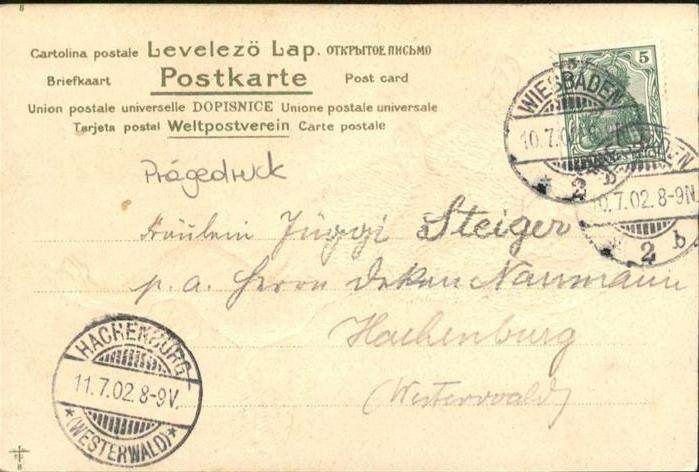 Cartolina postale Levelező Lap. ОТКРЫТОЕ ПИСЬМО
Briefkaart Postkarte Post card
Union postale universelle DOPISNICE Unione postale universale
Tarjeta postal Weltpostverein Carte postale
5
WIESBADEN
10.7.02
* 2
WIESBADEN
10.7.02. 8-9N.
* 2 b
Prägedruck
Fräulein Steiger
p. a. Herrn Dekan Naumann
Hachenburg
(Westerwald)
HACHENBURG
11.7.02. 8-9V.
*(WESTERWALD)*